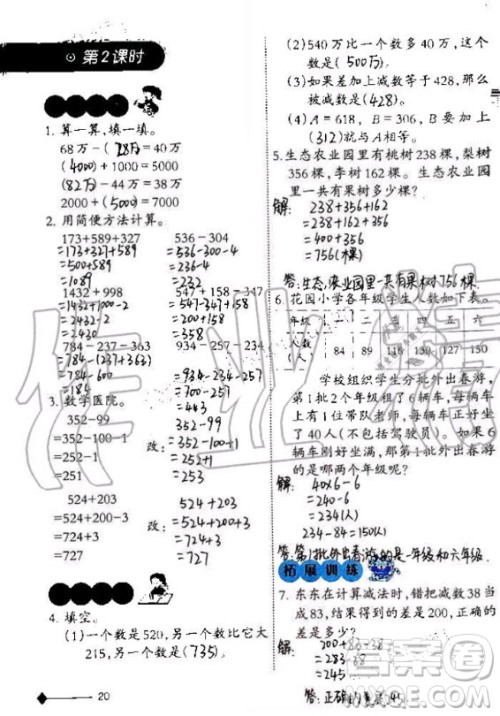 第2课时
1. 算一算,填一填。
68万-(28万)=40万
(4000)+1000=5000
(82万)-44万=38万
2000+(5000)=7000
2. 用简便方法计算。
173+589+327
=173+327+589
=500+589
=1089
536-304
=536-300-4
=232
1432+998
=1432+1000-2
=2432-2
=2430
547+158-347
=547-347+158
=358
784-237-363
=784-(237+363)
=784-600
=184
934-257-
=934-234-257
=700-257
=443
3. 数学医院。
352-99
=352-100-1
=252-1
=251
改:
352-99
=352-100+1
=252+1
=253
524+203
=524+200-3
=724-3
=727
改:
524+203
=524+200+3
=724+3
=727
4. 填空。
(1)一个数是520,另一个数比它大
215,另一个数是(735)。
20
(2)540万比一个数多40万,这个数
是(500万)。
(3)如果差加上减数等于428,那么
被减数是(428)。
(4)A=618,B=306,B要加上
(312)就与A相等。
5. 生态农业园里有桃树238棵,梨树
356棵,李树162棵。生态农业园
里一共有果树多少棵?
解:
238+356+162
=238+162+356
=400+356
=756(棵)
答:生态农业园里一共有果树756棵.
6. 花园小学各年级学生人数如下表。
年级 一 二 三 四 五 六
人数(人) 84 89 116 130 127 150
学校组织学生分批外出春游。
第1批2个年级租了6辆车,每辆车
上有1位带队老师,每辆车正好坐
了40人(不包括驾驶员)。如果6
辆车刚好坐满,那第1批外出春游
的是哪两个年级?
解:
40×6-6
=240-6
=234(人)
234-84=150(人)
答:第1批外出春游的是一年级和六年级.
拓展训练
7. 东东在计算减法时,错把减数38当
成83,结果得到的差是200,正确的
差是多少?
解:
200+83-38
=283-38
=245
答:正确的差是245